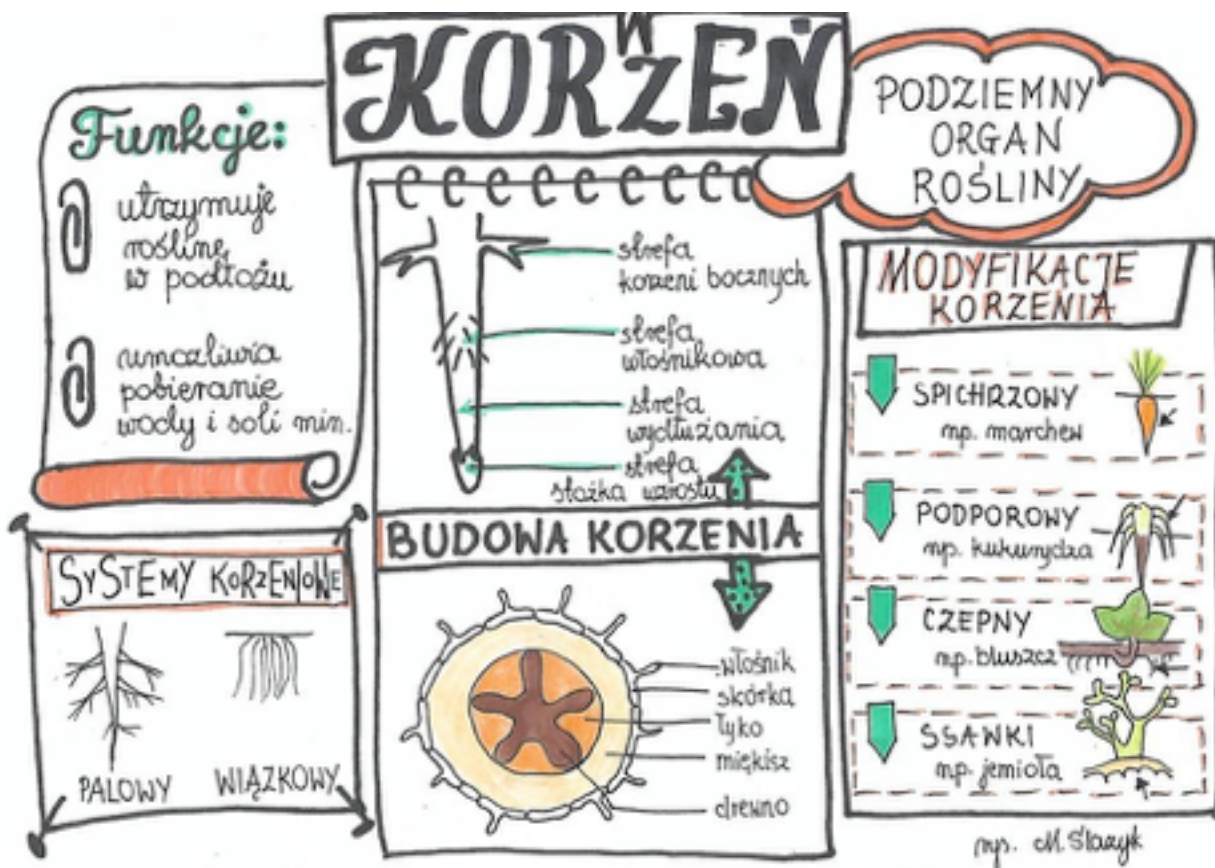 KORZEŃ
PODZIEMNY
ORGAN
ROŚLINY
Funkcje:
utrzymuje
roślinę
w podłożu
umożliwia
pobieranie
wody i soli min.
strefa
korzeni bocznych
strefa
włośnikowa
strefa
wydłużania
strefa
stożka wzrostu
BUDOWA KORZENIA
włośnik
skórka
łyko
miękisz
drewno
SYSTEMY KORZENIOWE
PALOWY
WIĄZKOWY
MODYFIKACJE
KORZENIA
SPICHRZOWY
np. marchew
PODPOROWY
np. kukurydza
CZEPNY
np. bluszcz
SSAWKI
np. jemioła
rys. M. Ślazyk